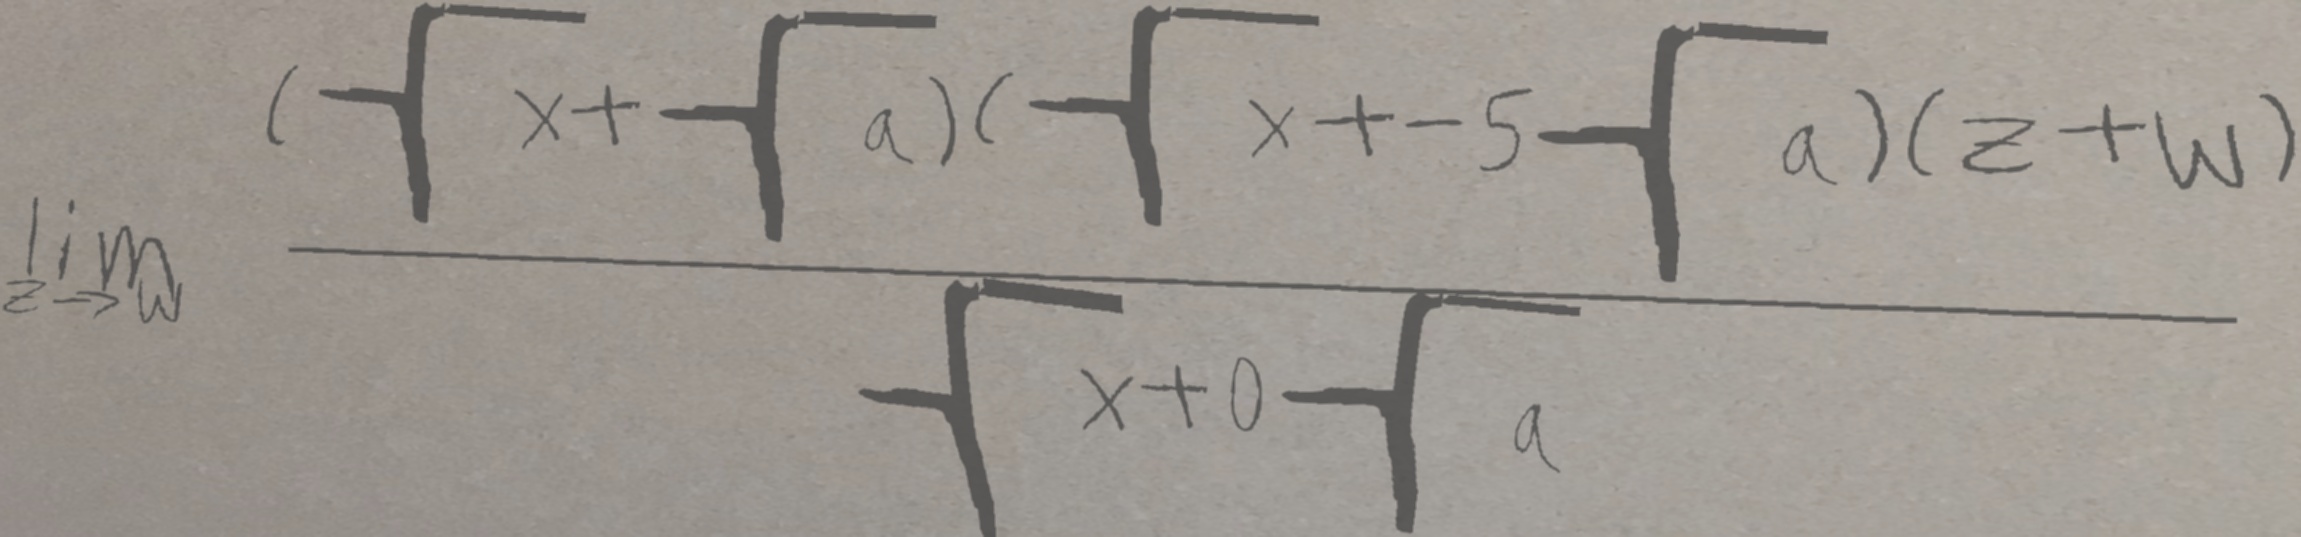 lim z→w (√x+√a)(√x+-5√a)(z+w) / √x+0√a